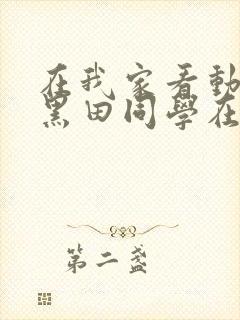 在我家看動
黑田同學在
第二盞